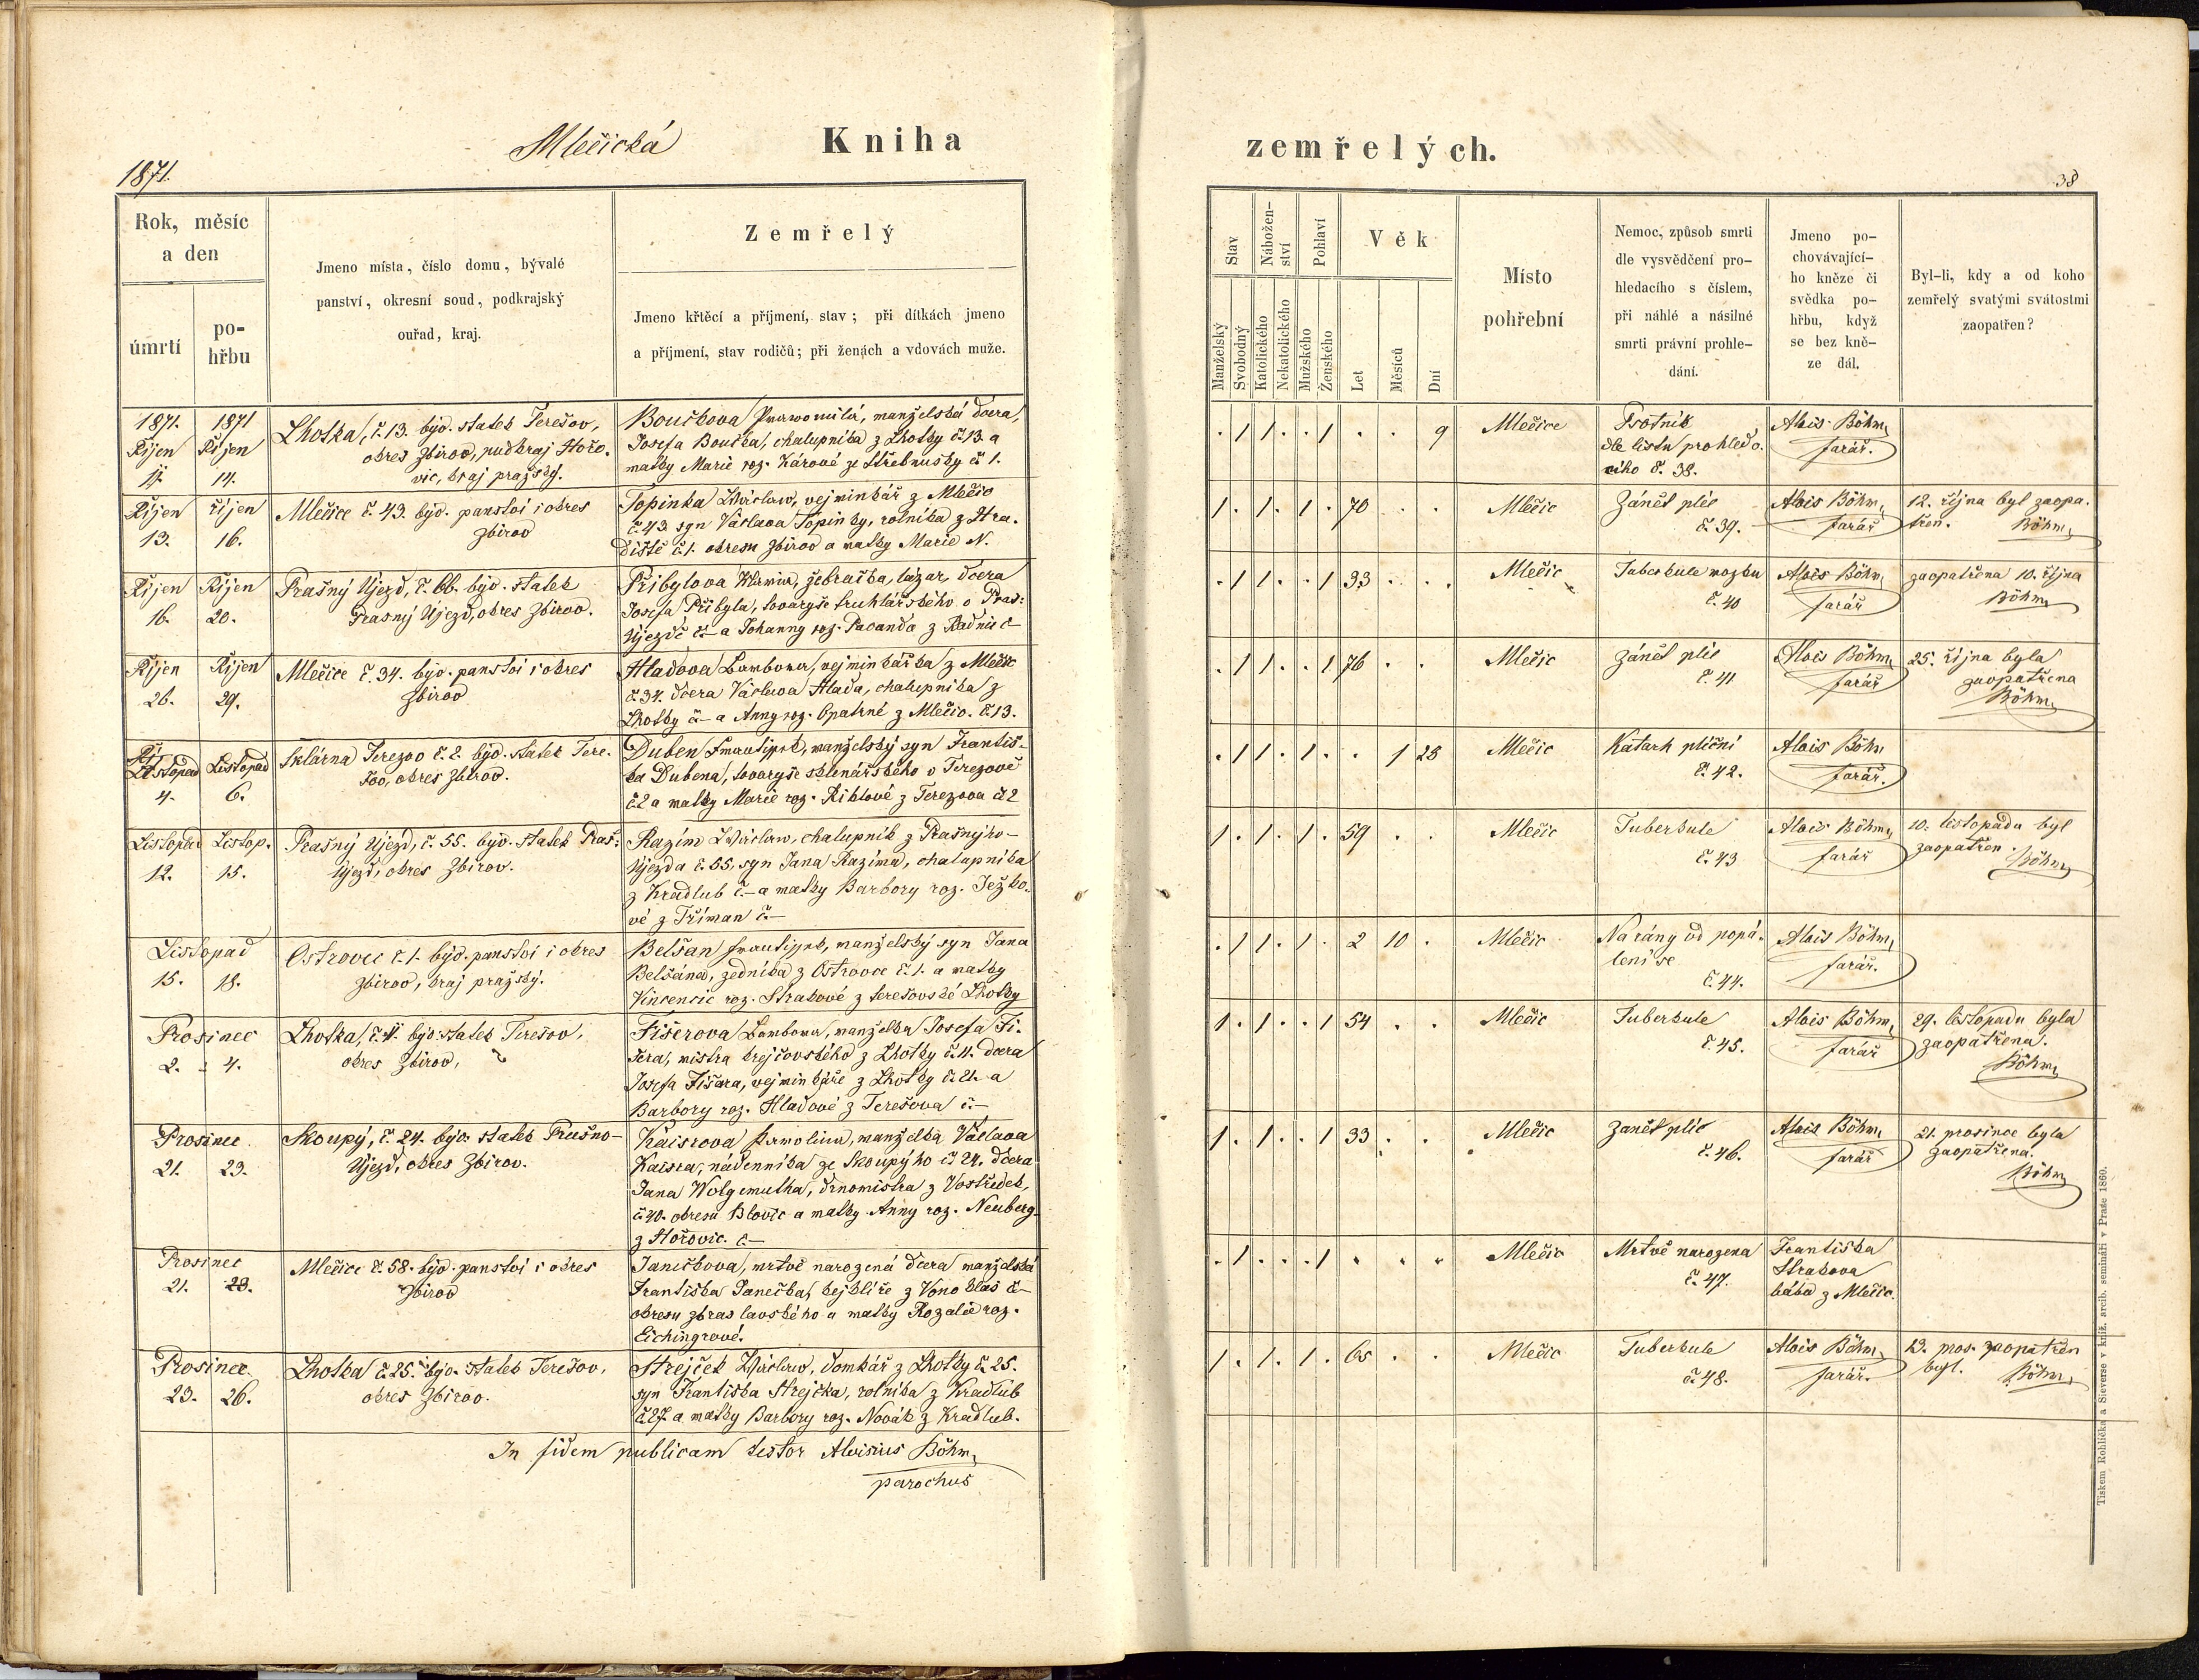 Mlečická Kniha
1871.
Rok, měsíc
a den
úmrtí
po-
hřbu
Jmeno místa, číslo domu, bývalé
panství, okresní soud, podkrajský
ouřad, kraj.
Zemřelý
Jmeno křtěcí a příjmení, stav; při dítkách jmeno
a příjmení, stav rodičů; při ženách a vdovách muže.
1871. 1871
Říjen Říjen
14.
Lhotka, č. 13. býv. statek Terešov,
okres Zbirov, podkraj Hořo-
vic, kraj pražský.
Boučkova manželská dcera
Josefa Boučka, chalupníka z Lhotky č. 13. a
matky Marie roz. Kárové ze Střebnusky č. 1.
Říjen říjen
13. 16.
Mlečice č. 43. býv. panství i okres
Zbirov
Topinka Wáclaw, vejminkář z Mlečic
č. 43. syn Václava Topinky, rolníka z Hra-
diště č. 1. okresu Zbirov a matky Marie N.
Říjen Říjen
16. 20.
Prašný Újezd, č. 66. býv. statek
Prasný Újezd, okres Zbirov.
Přibylova žebračka, lazar, dcera
Josefa Přibyla, tovaryše truhlářského v Praš:
Újezdě č – a Johanny roz. Pacanda z Radnic č –
Říjen Říjen
26. 29.
Mlečice č. 34. býv. panství i okres
Zbirov
Hladova Barbora, vejminkářka z Mlečic
č. 34. dcera Václava Hlada, chalupníka z
Lhotky č – a Anny roz. Opatrné z Mlečic. č. 13.
Listopad Listopad
4. 6.
Sklárna Terezov č. 2. býv. statek Tere-
šov, okres Zbirov.
Duben František, manželský syn Františ-
ka Dubena, tovaryše sklenářského v Terezově
č. 2 a matky Marie roz. Riblové z Terezova č. 2
Listopad Listop.
12. 15.
Prašný Újezd, č. 55. býv. statek Praš:
Újezd, okres Zbirov.
Razím Wáclaw, chalupník z Prašnýho-
Újezda č. 55, syn Jana Razíma, chalupníka
z Kradlub č. – a matky Barbory roz. Ježko-
vé z Tříman č. –
Listopad
15. 18.
Ostrovec č. 1. býv. panství i okres
Zbirov, kraj pražský.
Belšan František, manželský syn Jana
Belšána, zedníka z Ostrovce č. 1. a matky
Vincencie roz. Strakové z terešovské Lhotky
Prosinec
2. 4.
Lhotka, č. 4. býv. statek Terešov,
okres Zbirov,
Fišerova Barbora, manželka Josefa Fi-
šera, mistra krejčovského z Lhotky č. 4. dcera
Josefa Fišera, vejminkáře z Lhotky č. 21. a
Barbory roz. Hladové z Terešova č. –
Prosinec
21. 23.
Skoupý, č. 24. býv. statek Prašno-
Újezd, okres Zbirov.
Kaisrova Karolina, manželka Václava
Kaisra, nádenníka ze Skoupýho č. 24. dcera
Jana Wolgemutha, drnomistra z Vostředek,
č. 40. okresu Blovic a matky Anny roz. Neuberg
z Hořovic. č. –
Prosinec
21. 23.
Mlečice č. 58. býv. panství i okres
Zbirov
Janečkova, mrtvě narozená dcera manželská
Františka Janečka, kejklíře z Vonoklas č –
okresu zbraslavského a matky Rozalie roz.
Eichingrové.
Prosinec
23. 26.
Lhotka č. 25. býv. statek Terešov,
okres Zbirov.
Strejček Wáclaw, domkář z Lhotky č. 25.
syn Františka Strejčka, rolníka z Kradlub
č. 27. a matky Barbory roz. Novák z Kradlub.
In fidem publicam testor Aloisius Böhm,
parochus
zemřelých.
38
Stav
Nábožen-
ství
Pohlaví
Věk
Manželský
Svobodný
Katolického
Nekatolického
Mužského
Ženského
Let
Měsíců
Dní
Místo
pohřební
Nemoc, způsob smrti
dle vysvědčení pro-
hledacího s číslem,
při náhlé a násilné
smrti právní prohle-
dání.
Jmeno po-
chovávající-
ho kněze či
svědka po-
hřbu, když
se bez kně-
ze dál.
Byl-li, kdy a od koho
zemřelý svatými svátostmi
zaopatřen?
. 1 1 . . 1 . . 9 Mlečice
Psotník
dle listu prohledo-
cího č. 38.
Alois Böhm,
farář.
1 . 1 . 1 . 70 . . Mlečic
Zánět plic
č. 39.
Alois Böhm,
farář
12. října byl zaopa-
třen. Böhm,
. 1 1 . . 1 33 . . Mlečic
Tuberkule mozku
č. 40
Alois Böhm,
farář
zaopatřena 10. října
Böhm,
. 1 1 . . 1 76 . . Mlečic
Zánět plic
č. 41
Alois Böhm,
farář
25. října byla
zaopatřena
Böhm,
. 1 1 . 1 . . 1 23 Mlečic
Katarh plicní
č. 42.
Alois Böhm
farář.
1 . 1 . 1 . 59 . . Mlečic
Tuberkule
č. 43
Alois Böhm,
farář
10. listopadu byl
zaopatřen.
Böhm,
. 1 1 . 1 . 2 10 . Mlečic
Na rány od popá-
lení se
č. 44.
Alois Böhm,
farář.
1 . 1 . . 1 54 . . Mlečic
Tuberkule
č. 45.
Alois Böhm,
farář
29. listopadu byla
zaopatřena.
Böhm,
1 . 1 . . 1 33 . . Mlečic
Zanět plic
č. 46.
Alois Böhm,
farář
21. prosince byla
zaopatřena.
Böhm,
. 1 . . . 1 . . . Mlečic
Mrtvě narozena
č. 47.
Františka
Strakova
bába z Mlečic.
1 . 1 . 1 . 65 . . Mlečic
Tuberkule
č. 48.
Alois Böhm,
farář.
13. pros. zaopatřen
byl. Böhm,
Tiskem Rohlíčka a Sieverse v kníž. arcib. semináři v Praze 1860.